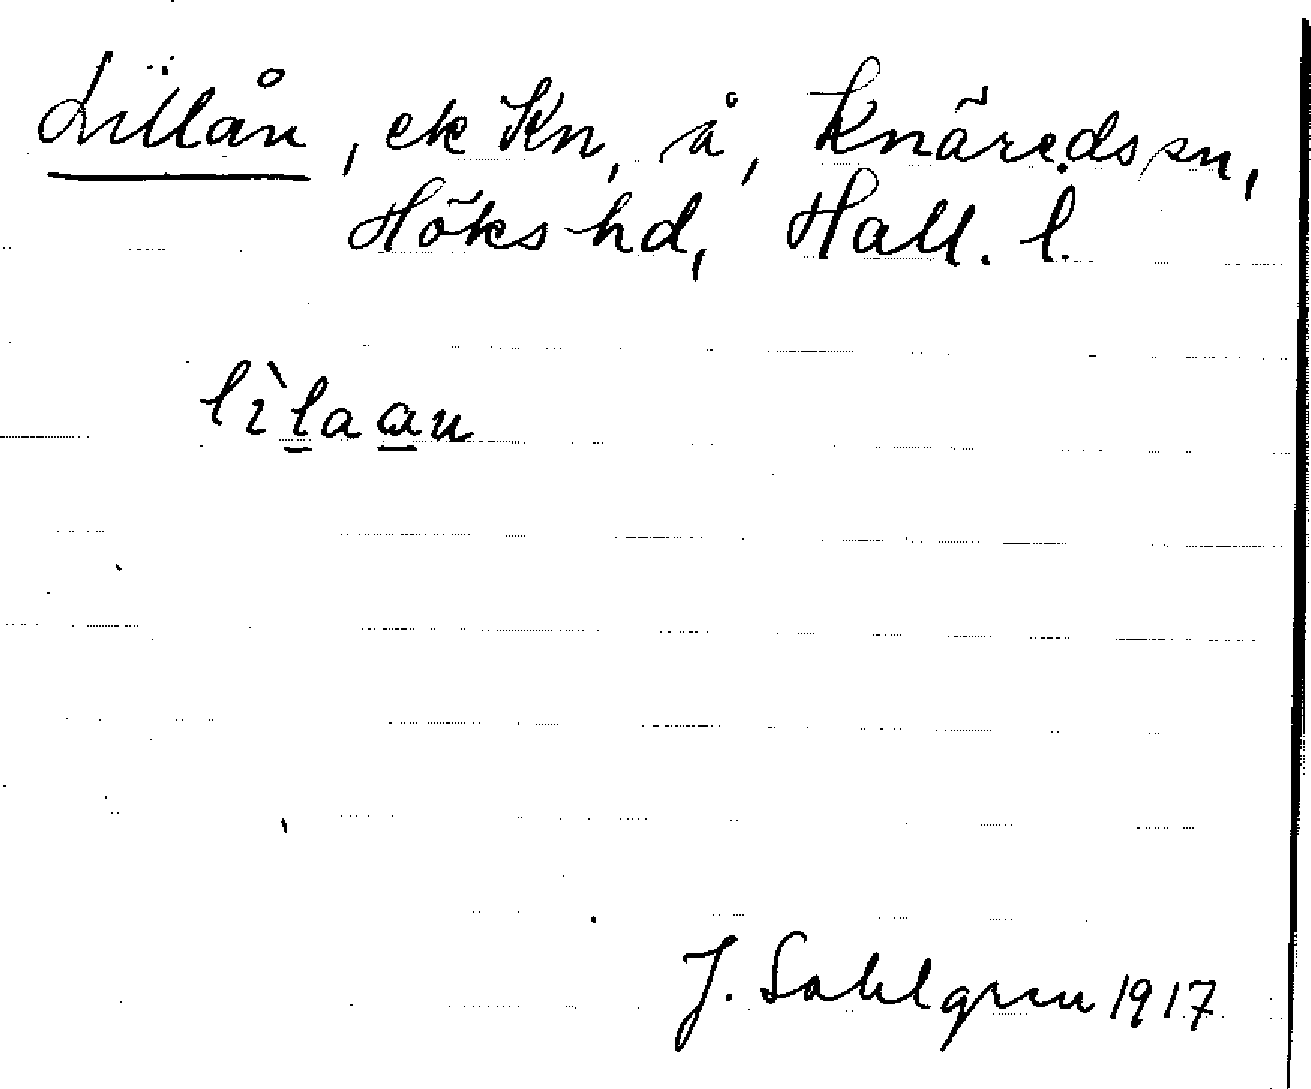 Lillån, ek Kn, å, Knäreds sn,
Höks hd, Hall. l.
lìlaan
J. Sahlgren 1917